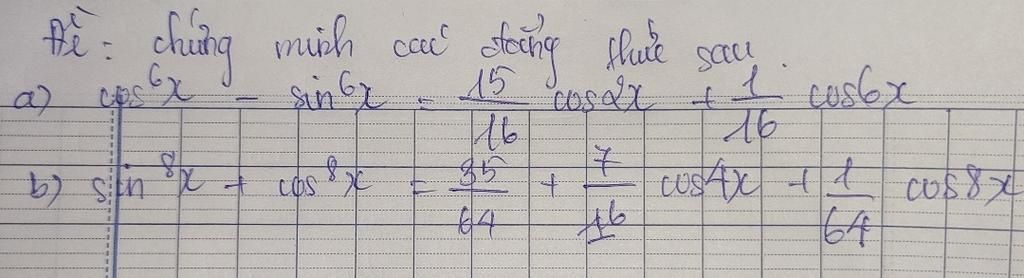 Đề: chứng minh các đẳng thức sau.
a) cos⁶x - sin⁶x = 15/16 cos2x + 1/16 cos6x
b) sin⁸x + cos⁸x = 35/64 + 7/16 cos4x + 1/64 cos8x